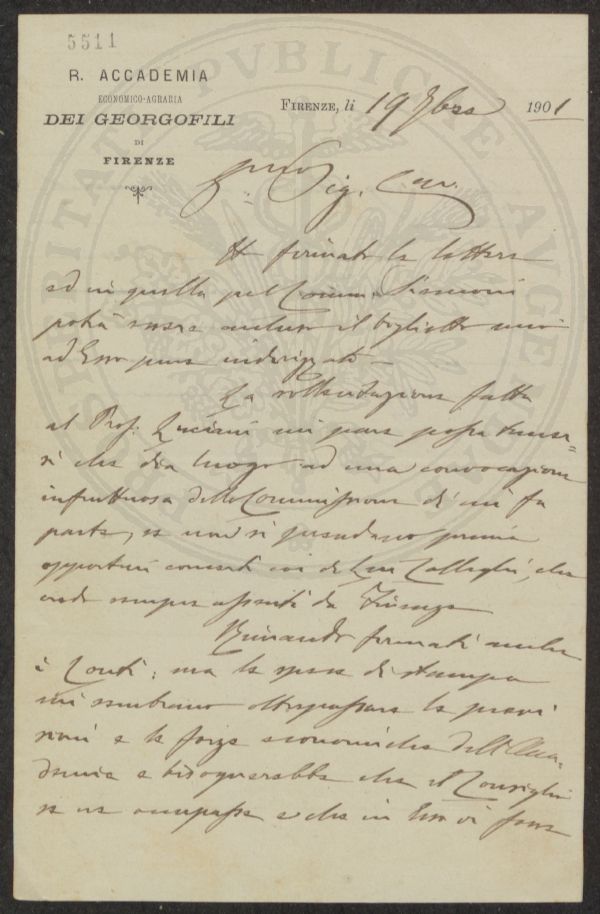 5511
R. ACCADEMIA
ECONOMICO-AGRARIA
DEI GEORGOFILI
DI
FIRENZE
FIRENZE, li 19 9bre 1901
PROSPERITATI PVBLICAE AVGENDAE
Sig. Cav.
Ho firmato le lettere
ed in quella pel Comm. Siemoni
potrà essere incluso il biglietto mio
ad Esso pure indirizzato —
La sollecitazione fatta
al Prof. Luciani mi pare possa temer=
si che dia luogo ad una convocazione
infruttuosa della Commissione di cui fa
parte, se non si prendano prima
opportuni concerti coi di Lui Colleghi, che
credo sempre assenti da Firenze
Rimando firmati anche
i Conti; ma le spese di stampa
mi sembrano oltrepassare le previ
sioni e le forze economiche dell'Acca=
demia e bisognerebbe che il Consiglio
se ne occupasse e che in Esso vi fosse